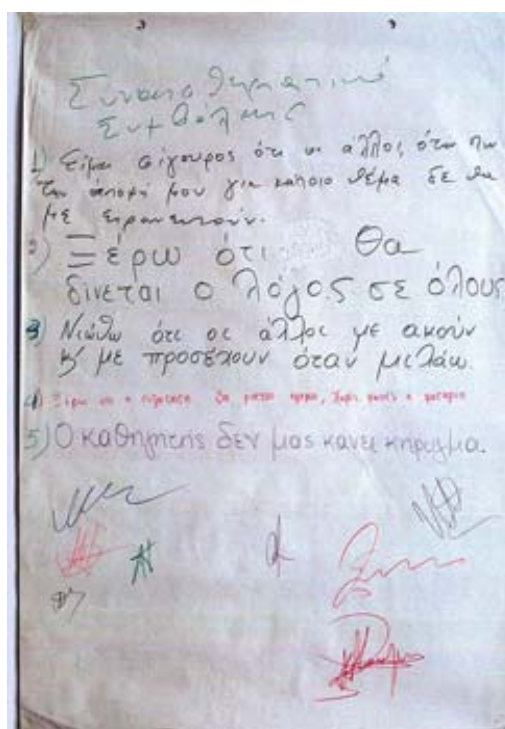 Συναισθηματικό
Συμβόλαιο
1) Είμαι σίγουρος ότι οι άλλοι, όταν πω
την άποψή μου για κάποιο θέμα δε θα
με ειρωνευτούν.
2) Ξέρω ότι θα
δίνεται ο λόγος σε όλους
3) Νιώθω ότι οι άλλοι με ακούν
κ' με προσέχουν όταν μιλάω.
4) Ξέρω ότι η συζήτηση θα γίνεται ήρεμα, χωρίς φωνές
5) Ο καθηγητής δεν μας κάνει κήρυγμα.